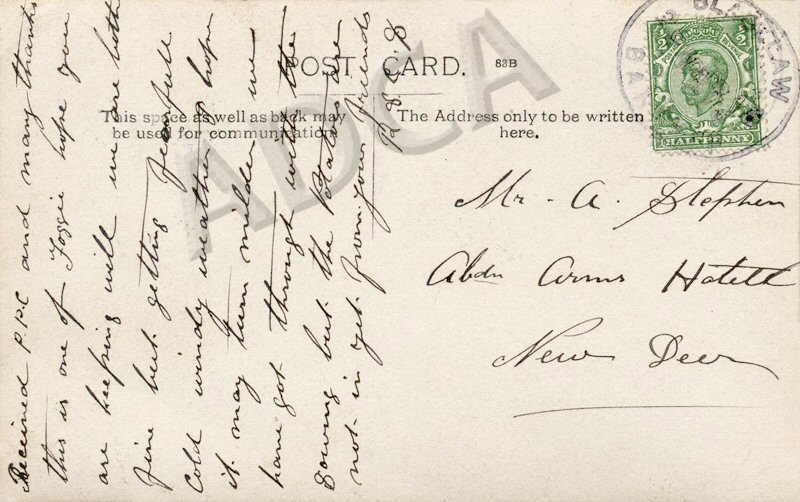 POST CARD. 83B
This space as well as back may be used for communication
The Address only to be written here.
Received P.P.C and many thanks
this is one of Foggie hope you
are keeping well we are both
fine but getting fearfull
cold windy weather hope
it may turn milder we
have got through with the
sowing but the Potatoes are
not in yet from your friends
Mr. A. Stephen
Abdn Arms Hotell
New Deer
BLACKLAW
BAN
HALFPENNY
1/2
1/2
ADCA